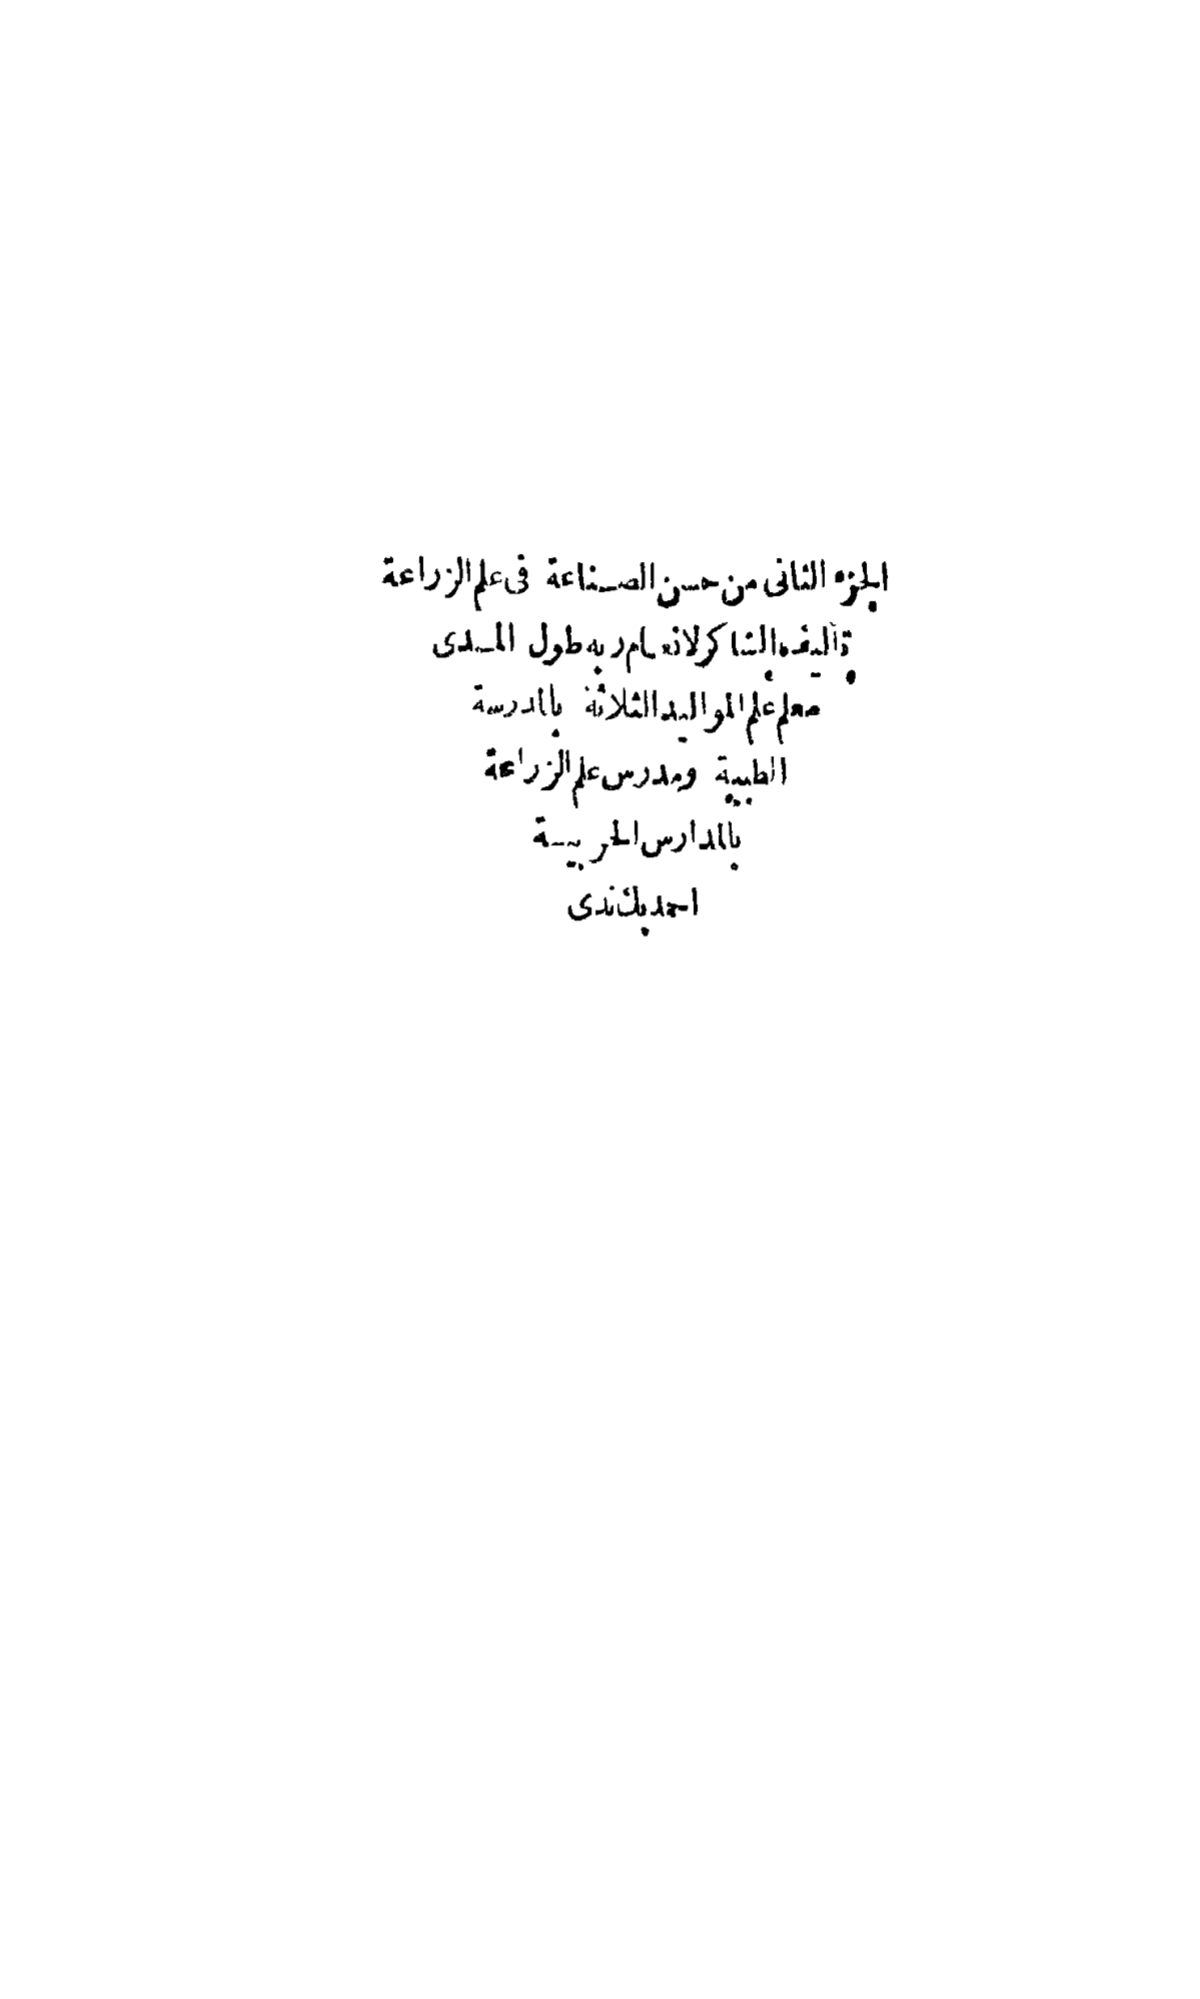 الجزء الثانى من حسن الصناعة فى علم الزراعة
تأليف الشاكر لانعام ربه طول المدى
معلم علم المواليد الثلاثة بالمدرسة
الطبية ومدرس علم الزراعة
بالمدارس الحربية
احمد بك ندى